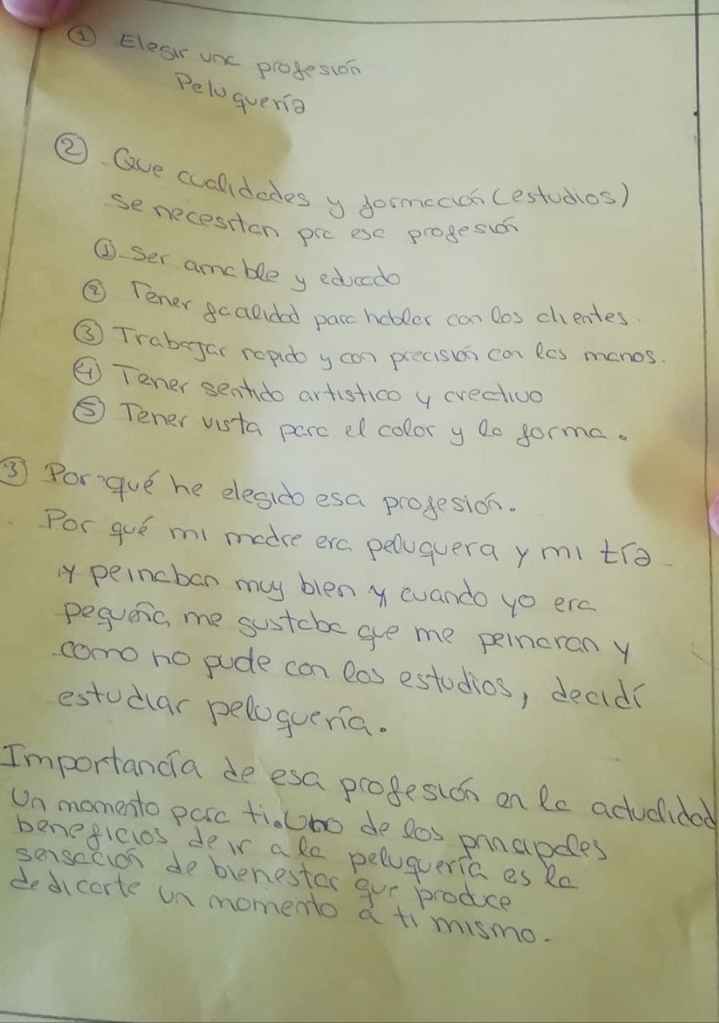 ① Elegir una profesión
Peluquería
② Que cualidades y formación (estudios)
se necesitan pra esa profesión
①. Ser amable y educado
② Tener facalidad para hablar con los clientes.
③ Trabajar rapido y con precisión con las manos.
④ Tener sentido artistico y creativo
⑤ Tener vista para el color y la forma.
③ Por qué he elegido esa profesión.
Por qué mi madre era peluquera y mi tía
y peinaban muy bien y cuando yo era
pequeña, me gustaba que me peinaran y
como no pude con los estudios, decidí
estudiar peluquería.
Importancia de esa profesión en la actualidad
Un momento para ti. Uno de los principales
beneficios de ir a la peluquería es la
sensación de bienestar que produce
dedicarte un momento a ti mismo.